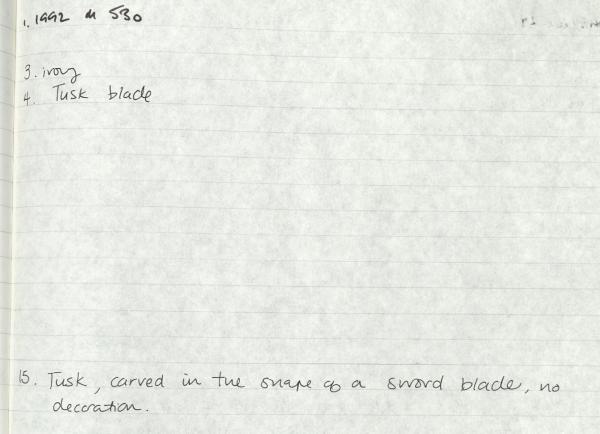 1. 1992 M 530
3. ivory
4. Tusk blade
15. Tusk, carved in the shape of a sword blade, no
decoration.